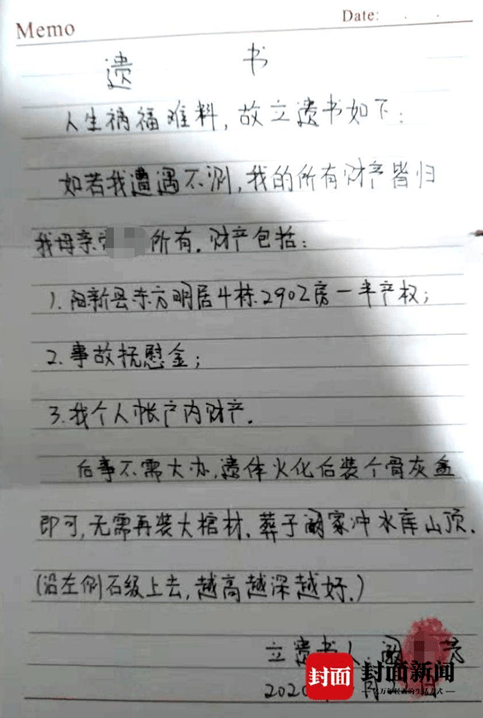 Memo
Date:
遗 书
人生祸福难料,故立遗书如下:
如若我遭遇不测,我的所有财产皆归
我母亲 所有.财产包括:
1.阳新县东方明居4栋2902房一半产权;
2.事故抚慰金;
3.我个人帐户内财产.
后事不需大办,遗体火化后装个骨灰盒
即可,无需再装大棺材.葬于阚家冲水库山顶.
(沿左侧石级上去,越高越深越好.)
立遗书人:
封面 封面新闻
亿万年轻人的生活方式
2020